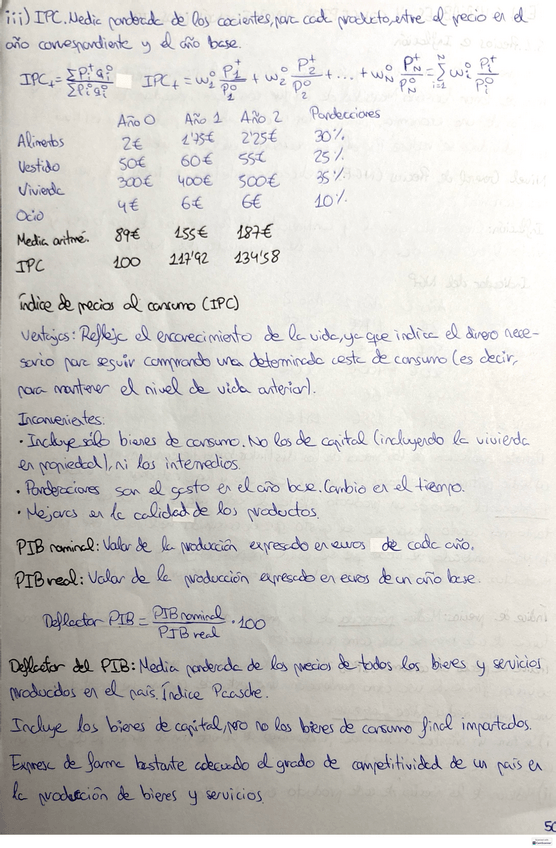 iii) IPC. Media ponderada de los cocientes, para cada producto, entre el precio en el
año correspondiente y el año base.
IPC₊ = ΣPᵢᵗqᵢ⁰ / ΣPᵢ⁰qᵢ⁰   IPC₊ = w₁⁰ P₁ᵗ/P₁⁰ + w₂⁰ P₂ᵗ/P₂⁰ + ... + w_N⁰ P_Nᵗ/P_N⁰ = Σᵢ₌₁ᴺ wᵢ⁰ Pᵢᵗ/Pᵢ⁰
Año 0 Año 1 Año 2 Ponderaciones
Alimentos 2€ 1'75€ 2'25€ 30%
Vestido 50€ 60€ 55€ 25%
Vivienda 300€ 400€ 500€ 35%
Ocio 4€ 6€ 6€ 10%
Media aritmé. 89€ 155€ 187€
IPC 100 117'92 134'58
Índice de precios al consumo (IPC)
Ventajas: Refleja el encarecimiento de la vida, ya que indica el dinero nece-
sario para seguir comprando una determinada cesta de consumo (es decir,
para mantener el nivel de vida anterior).
Inconvenientes:
· Incluye sólo bienes de consumo. No los de capital (incluyendo la vivienda
en propiedad), ni los intermedios.
· Ponderaciones son el gasto en el año base. Cambio en el tiempo.
· Mejoras en la calidad de los productos.
PIB nominal: Valor de la producción expresado en euros de cada año.
PIB real: Valor de la producción expresado en euros de un año base.
Deflactor PIB = PIB nominal / PIB real · 100
Deflactor del PIB: Media ponderada de los precios de todos los bienes y servicios
producidos en el país. Índice Paasche.
Incluye los bienes de capital, pero no los bienes de consumo final importados.
Expresa de forma bastante adecuada el grado de competitividad de un país en
la producción de bienes y servicios.
50